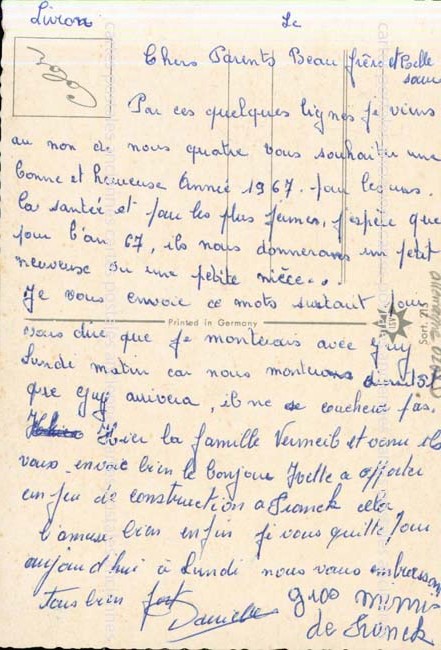 Livron Le
Chers Parents Beau frère et Belle
sœur
Par ces quelques lignes je viens
au non de nous quatre vous souhaiter une
bonne et heureuse Année 1967. pour les uns.
la santée et pour les plus jeunes, j'espère que
pour l'an 67, ils nous donnerons un petit
neuveux ou une petite nièce...
Je vous envoie ce mots surtout pour
Printed in Germany
vous dire que je monterais avec Guy
Lundi matin car nous monterons aussitôt
que Guy arrivera, il ne se couchera pas.
Hier la famille Verneib et venu ils
vous envoie bien le bonjour Yvette a apporter
un jeu de construction a Franck cela
l'amuse bien enfin je vous quitte pour
aujourd'hui à Lundi nous vous embrassons
tous bien fort gros mimis
Danielle de Franck